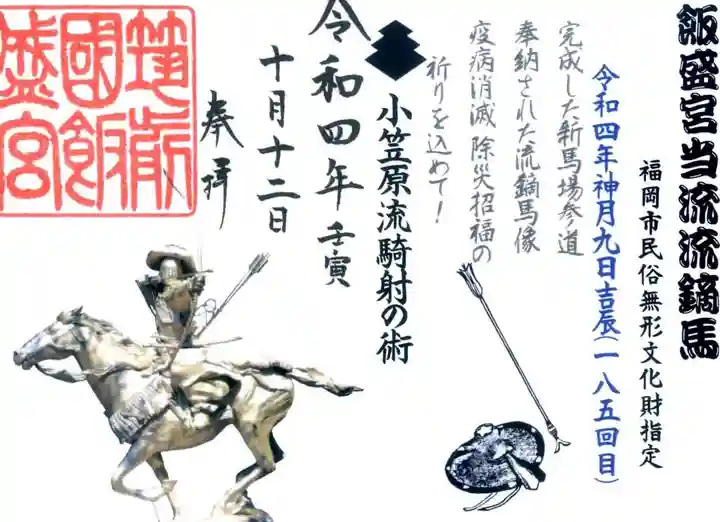 飯盛宮当流流鏑馬
福岡市民俗無形文化財指定
令和四年神月九日吉辰(一八五回目)
完成した新馬場参道
奉納された流鏑馬像
疫病消滅 除災招福の
祈りを込めて!
小笠原流騎射の術
令和四年壬寅
十月十二日
奉拝
筑前
國飯
盛宮